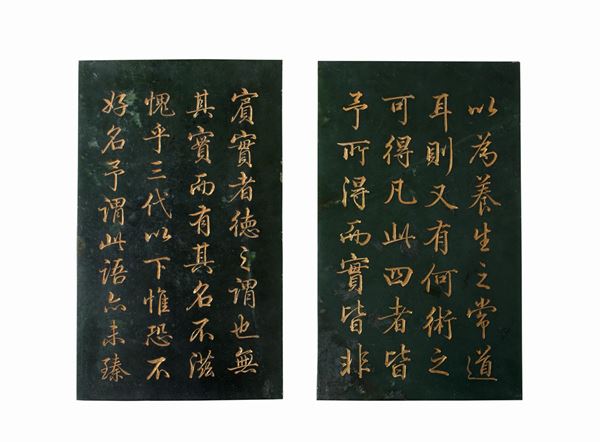 以為養生之常道
耳則又有何術之
可得凡此四者皆
予所得而實皆非
賓實者德之謂也無
其實而有其名不滋
愧乎三代以下惟恐不
好名予謂此語亦未臻